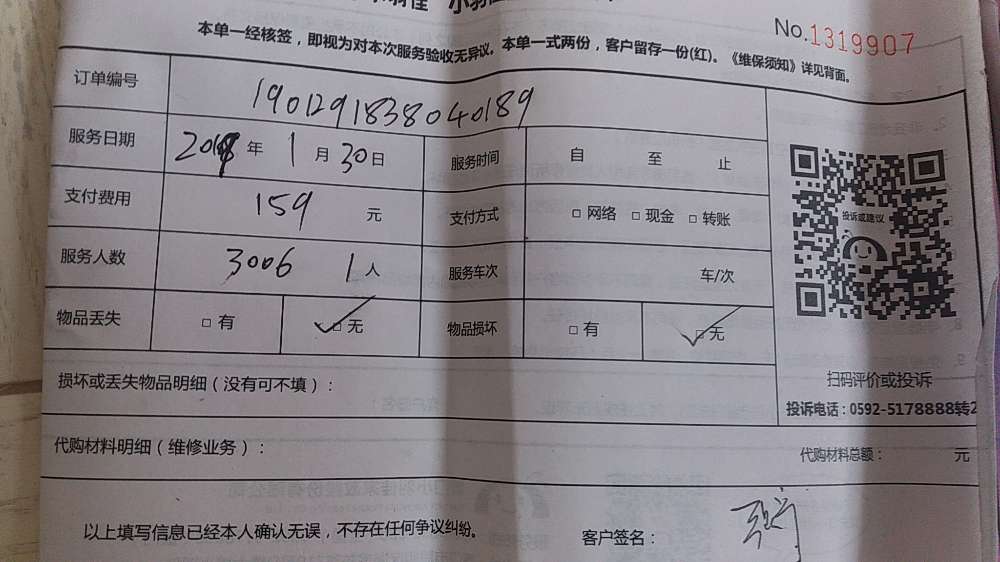 No.1319907
本单一经核签，即视为对本次服务验收无异议。本单一式两份，客户留存一份(红)。《维保须知》详见背面。
订单编号 1901291838040189
服务日期 年 1 月 30 日 服务时间 自 至 止
支付费用 159 元 支付方式 □ 网络 □ 现金 □ 转账
服务人数 3006 1 人 服务车次 车/次
物品丢失 □ 有 ✓□ 无 物品损坏 □ 有 ✓□ 无
投诉或建议
扫码评价或投诉
投诉电话：0592-5178888转2
损坏或丢失物品明细（没有可不填）：
代购材料明细（维修业务）： 代购材料总额： 元
以上填写信息已经本人确认无误，不存在任何争议纠纷。 客户签名：